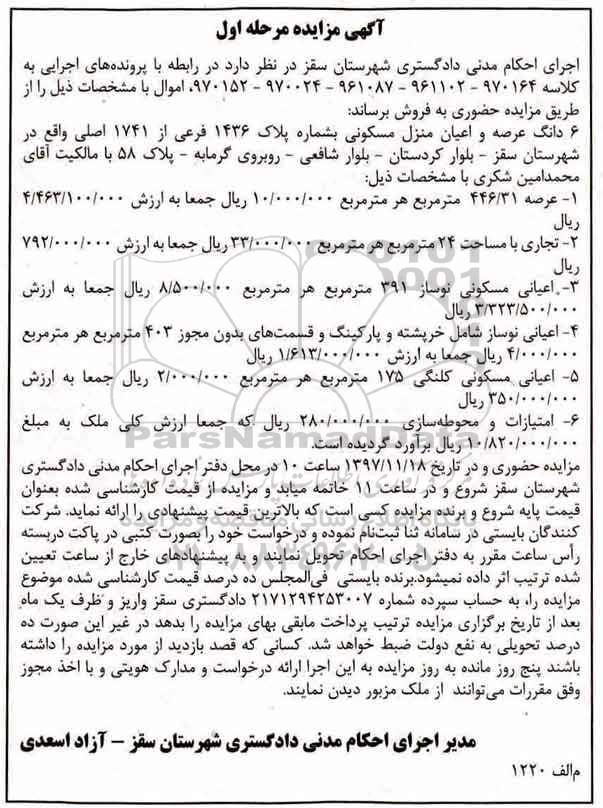 آگهی مزایده مرحله اول
اجرای احکام مدنی دادگستری شهرستان سقز در نظر دارد در رابطه با پرونده‌های اجرایی به
کلاسه ۹۷۰۱۶۴ - ۹۶۱۱۰۲ - ۹۶۱۰۸۷ - ۹۷۰۰۲۴ - ۹۷۰۱۵۲، اموال با مشخصات ذیل را از
طریق مزایده حضوری به فروش برساند:
۶ دانگ عرصه و اعیان منزل مسکونی بشماره پلاک ۱۴۳۶ فرعی از ۱۷۴۱ اصلی واقع در
شهرستان سقز - بلوار کردستان - بلوار شافعی - روبروی گرمابه - پلاک ۵۸ با مالکیت آقای
محمدامین شکری با مشخصات ذیل:
۱- عرصه ۴۴۶/۳۱ مترمربع هر مترمربع ۱۰/۰۰۰/۰۰۰ ریال جمعا به ارزش ۴/۴۶۳/۱۰۰/۰۰۰
ریال
۲- تجاری با مساحت ۲۴ مترمربع هر مترمربع ۳۳/۰۰۰/۰۰۰ ریال جمعا به ارزش ۷۹۲/۰۰۰/۰۰۰
ریال
۳- اعیانی مسکونی نوساز ۳۹۱ مترمربع هر مترمربع ۸/۵۰۰/۰۰۰ ریال جمعا به ارزش
۳/۳۲۳/۵۰۰/۰۰۰ ریال
۴- اعیانی نوساز شامل خرپشته و پارکینگ و قسمت‌های بدون مجوز ۴۰۳ مترمربع هر مترمربع
۴/۰۰۰/۰۰۰ ریال جمعا به ارزش ۱/۶۱۳/۰۰۰/۰۰۰ ریال
۵- اعیانی مسکونی کلنگی ۱۷۵ مترمربع هر مترمربع ۲/۰۰۰/۰۰۰ ریال جمعا به ارزش
۳۵۰/۰۰۰/۰۰۰ ریال
۶- امتیازات و محوطه‌سازی ۲۸۰/۰۰۰/۰۰۰ ریال که جمعا ارزش کلی ملک به مبلغ
۱۰/۸۲۰/۰۰۰/۰۰۰ ریال برآورد گردیده است.
مزایده حضوری و در تاریخ ۱۳۹۷/۱۱/۱۸ ساعت ۱۰ در محل دفتر اجرای احکام مدنی دادگستری
شهرستان سقز شروع و در ساعت ۱۱ خاتمه میابد و مزایده از قیمت کارشناسی شده بعنوان
قیمت پایه شروع و برنده مزایده کسی است که بالاترین قیمت پیشنهادی را ارائه نماید. شرکت
کنندگان بایستی در سامانه ثنا ثبت‌نام نموده و درخواست خود را بصورت کتبی در پاکت دربسته
رأس ساعت مقرر به دفتر اجرای احکام تحویل نمایند و به پیشنهادهای خارج از ساعت تعیین
شده ترتیب اثر داده نمیشود.برنده بایستی فی‌المجلس ده درصد قیمت کارشناسی شده موضوع
مزایده را، به حساب سپرده شماره ۲۱۷۱۲۹۴۲۵۳۰۰۷ دادگستری سقز واریز و ظرف یک ماه
بعد از تاریخ برگزاری مزایده ترتیب پرداخت مابقی بهای مزایده را بدهد در غیر این صورت ده
درصد تحویلی به نفع دولت ضبط خواهد شد. کسانی که قصد بازدید از مورد مزایده را داشته
باشند پنج روز مانده به روز مزایده به این اجرا ارائه درخواست و مدارک هویتی و با اخذ مجوز
وفق مقررات می‌توانند از ملک مزبور دیدن نمایند.
مدیر اجرای احکام مدنی دادگستری شهرستان سقز - آزاد اسعدی
م‌الف ۱۲۲۰
ParsNamadData